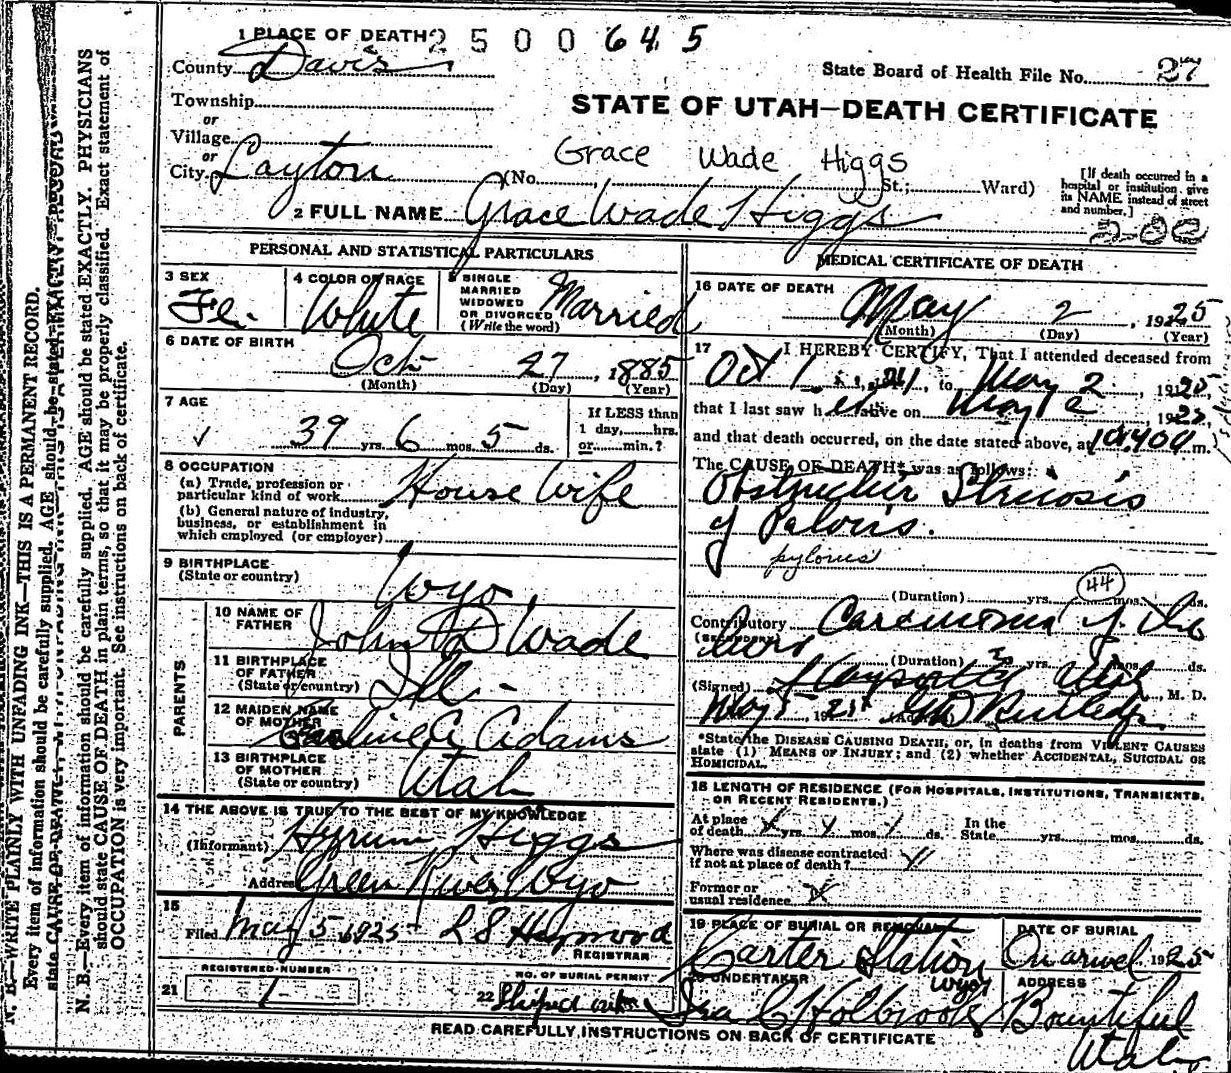 1 PLACE OF DEATH 2500645
County Davis
State Board of Health File No. 27
Township
or
Village
or
City Layton
STATE OF UTAH—DEATH CERTIFICATE
Grace Wade Higgs
(No. St.; Ward)
[If death occurred in a
hospital or institution, give
its NAME instead of street
and number.]
2 FULL NAME Grace Wade Higgs
PERSONAL AND STATISTICAL PARTICULARS
3 SEX
Fe.
4 COLOR OR RACE
White
5 SINGLE
MARRIED
WIDOWED
OR DIVORCED
(Write the word)
Married
6 DATE OF BIRTH
Oct 27, 1885
(Month) (Day) (Year)
7 AGE
39 yrs. 6 mos. 5 ds.
If LESS than
1 day, hrs.
or min.?
8 OCCUPATION
(a) Trade, profession or
particular kind of work House Wife
(b) General nature of industry,
business, or establishment in
which employed (or employer)
9 BIRTHPLACE
(State or country)
Wyo.
PARENTS
10 NAME OF
FATHER
John D Wade
11 BIRTHPLACE
OF FATHER
(State or country)
Ill.
12 MAIDEN NAME
OF MOTHER
A Adams
13 BIRTHPLACE
OF MOTHER
(State or country)
Utah
14 THE ABOVE IS TRUE TO THE BEST OF MY KNOWLEDGE
(Informant) Hyrum Higgs
Address Green River Wyo
15
Filed May 5 1925 L S Heywood
REGISTRAR
REGISTERED NUMBER
21 1
NO. OF BURIAL PERMIT
22 Shiped out
MEDICAL CERTIFICATE OF DEATH
16 DATE OF DEATH
May 2, 1925
(Month) (Day) (Year)
17 I HEREBY CERTIFY, That I attended deceased from
Oct 1, to May 2, 1925
that I last saw her alive on May 2 192
and that death occurred, on the date stated above, at m.
The CAUSE OF DEATH* was as follows:
Obstructive
of
pylorus
44
(Duration) yrs. mos. ds.
Contributory Carcinoma of the
(SECONDARY)
(Duration) yrs. mos. ds.
(Signed) M. D.
May 5, 192
*State the DISEASE CAUSING DEATH, or, in deaths from VIOLENT CAUSES
state (1) MEANS OF INJURY; and (2) whether ACCIDENTAL, SUICIDAL OR
HOMICIDAL.
18 LENGTH OF RESIDENCE (FOR HOSPITALS, INSTITUTIONS, TRANSIENTS,
OR RECENT RESIDENTS.)
At place
of death yrs. mos. ds.
In the
State yrs. mos. ds.
Where was disease contracted
if not at place of death?
Former or
usual residence
19 PLACE OF BURIAL OR REMOVAL
Carter Station
Wyo
DATE OF BURIAL
On arival 1925
20 UNDERTAKER
Ira C Holbrook
ADDRESS
Bountiful
Utah
READ CAREFULLY INSTRUCTIONS ON BACK OF CERTIFICATE
N. B.—WRITE PLAINLY WITH UNFADING INK—THIS IS A PERMANENT RECORD.
Every item of information should be carefully supplied. AGE should be stated EXACTLY. PHYSICIANS
N. B.—Every item of information should be carefully supplied. AGE should be stated EXACTLY. PHYSICIANS
should state CAUSE OF DEATH in plain terms, so that it may be properly classified. Exact statement of
OCCUPATION is very important. See instructions on back of certificate.